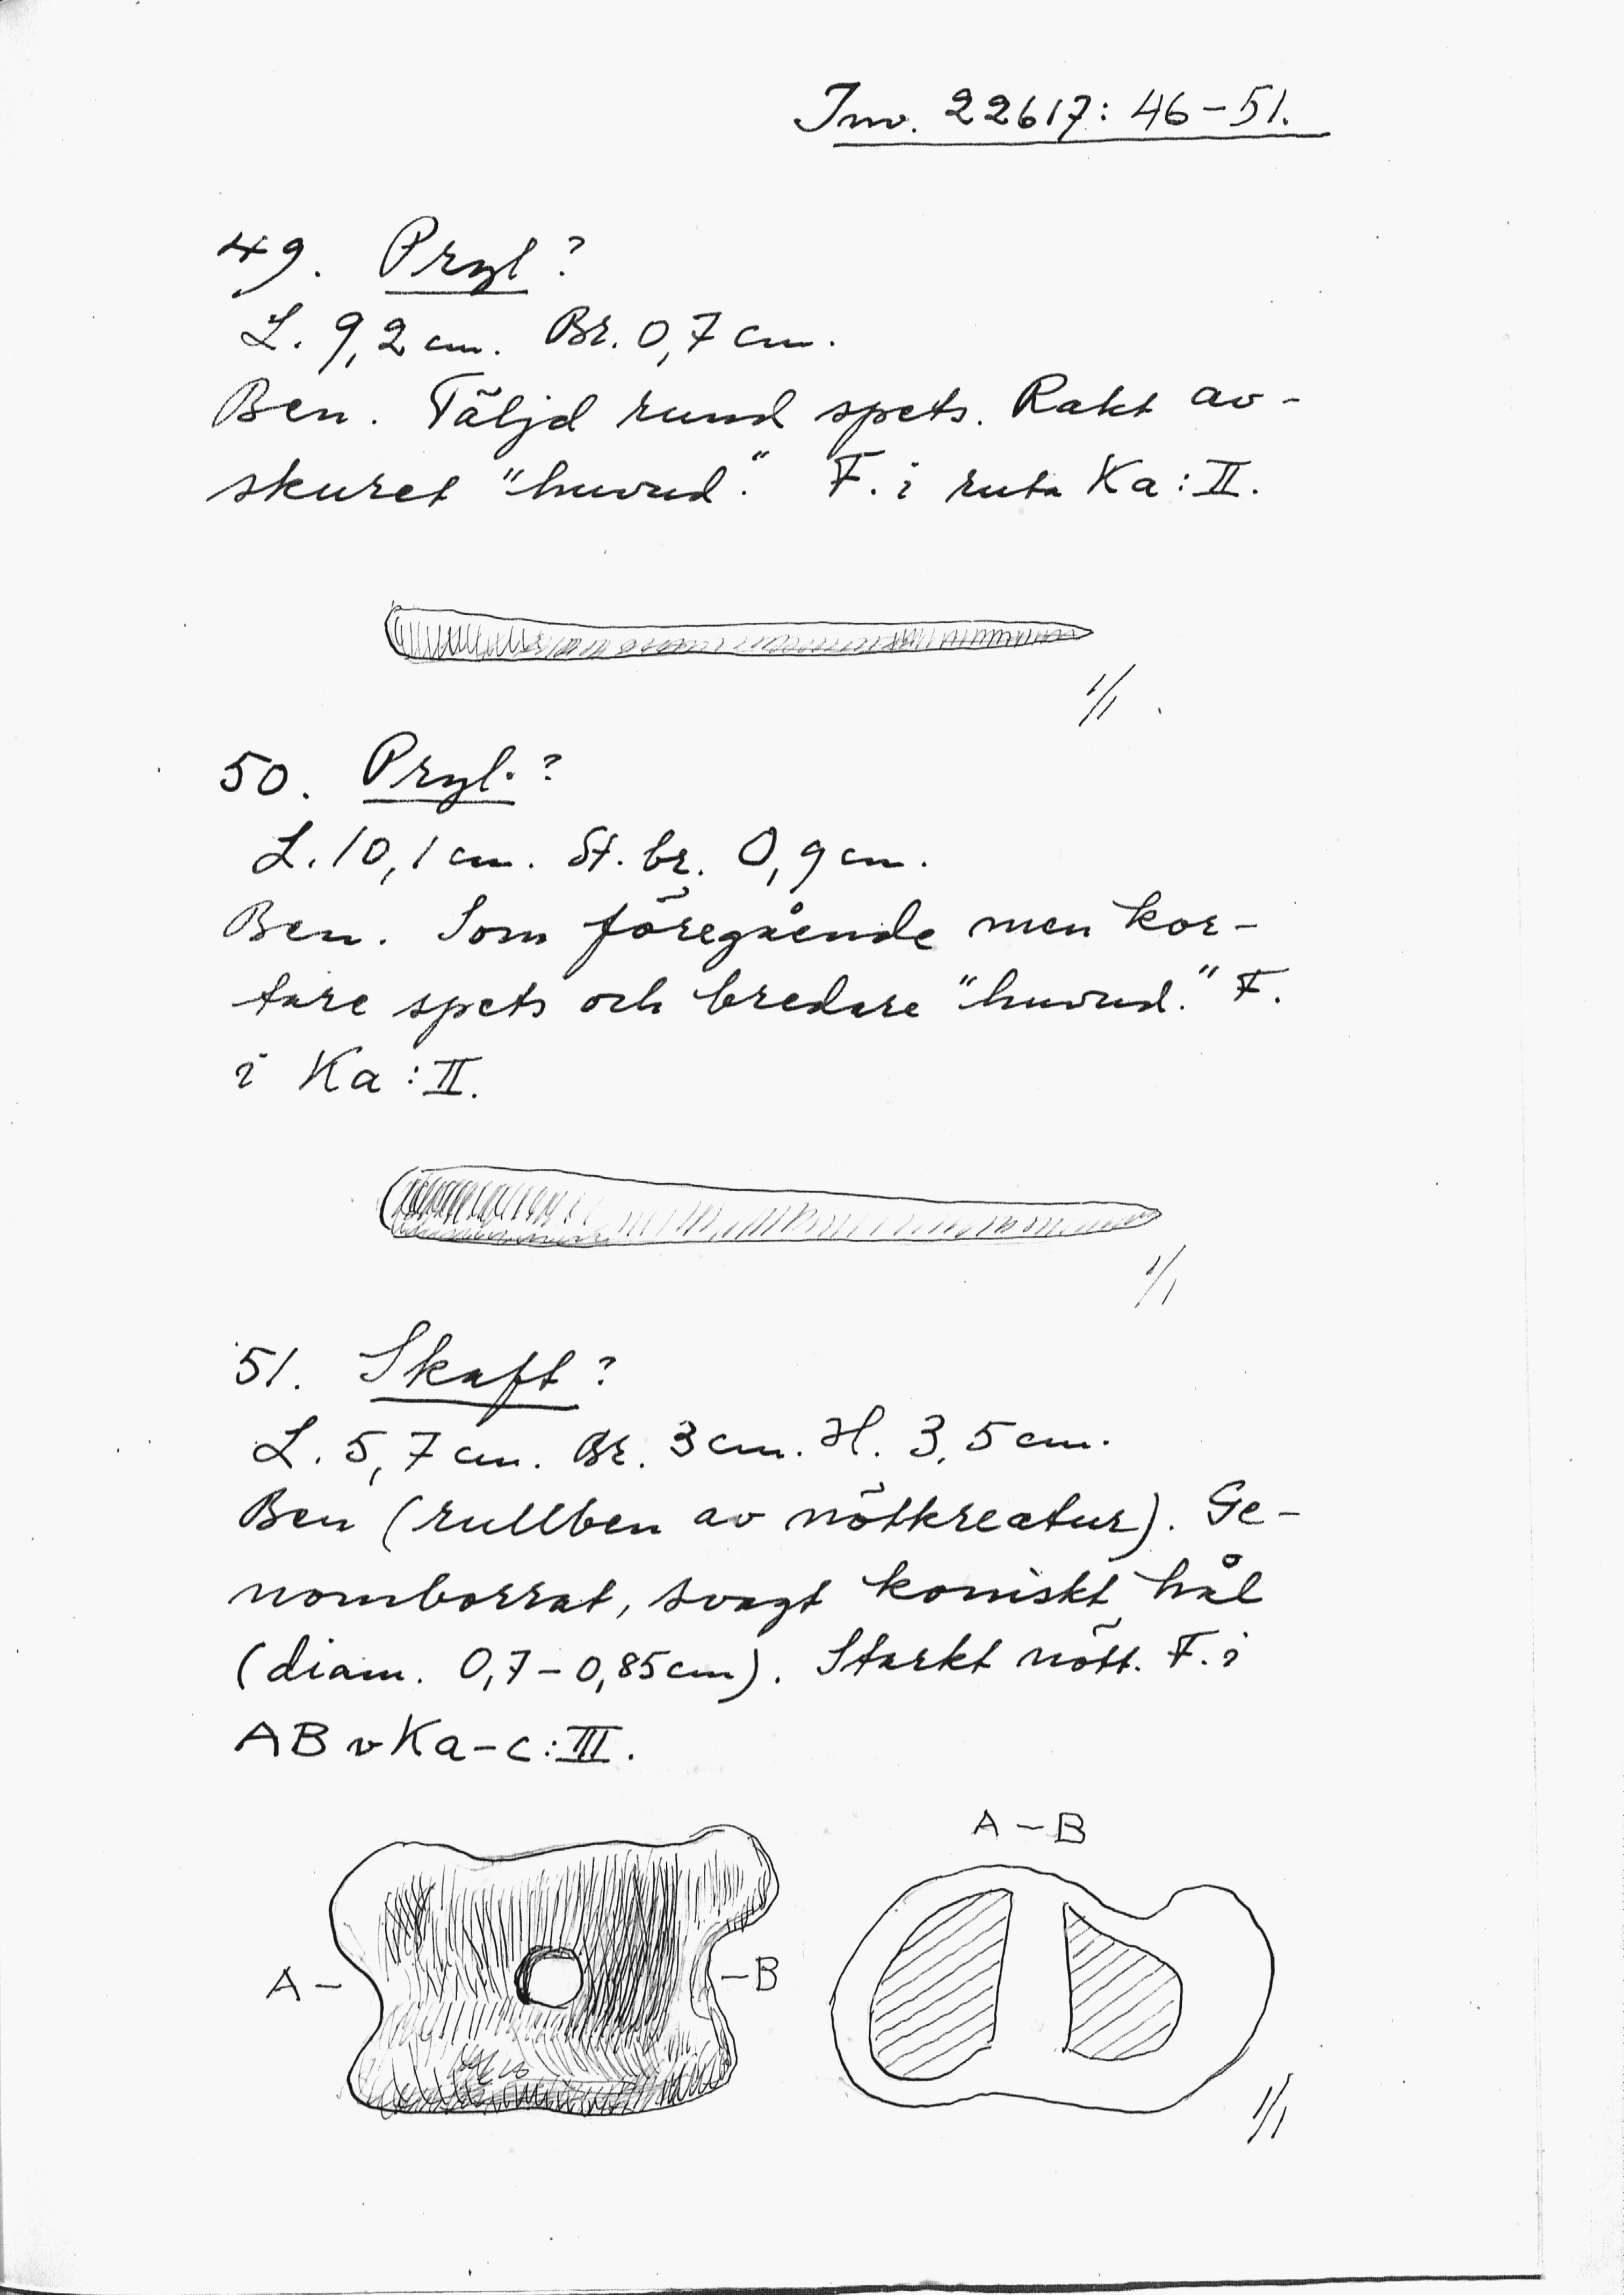 Inv. 22617: 46-51.
49. Pryl?
L. 9,2 cm. Br. 0,7 cm.
Ben. Täljd rund spets. Rakt av-
skuret "huvud." F. i ruta Ka:II.
1/1
50. Pryl.?
L. 10,1 cm. St. br. 0,9 cm.
Ben. Som föregående men kor-
tare spets och bredare "huvud." F.
i Ka:II.
1/1
51. Skaft?
L. 5,7 cm. Br. 3 cm. H. 3,5 cm.
Ben (rullben av nötkreatur). Ge-
nomborrat, svagt koniskt hål
(diam. 0,7-0,85 cm). Starkt nött. F. i
AB v Ka-c:III.
A-B
A-
-B
1/1